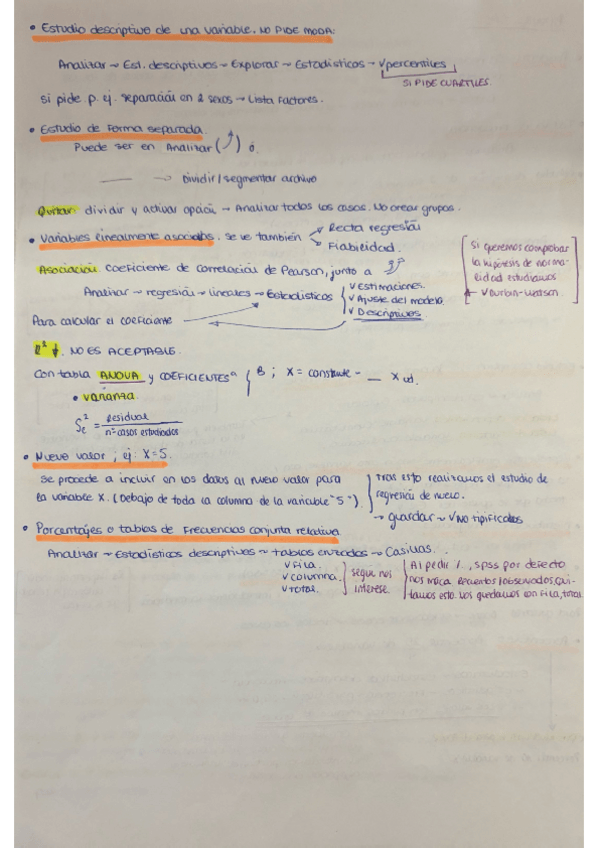 • Estudio descriptivo de una variable. NO PIDE MODA:
Analizar → Est. descriptivos → Explorar → Estadísticos → √percentiles
SI PIDE CUARTILES
si pide p. ej. separación en 2 sexos → Lista factores.
• Estudio de forma separada.
Puede ser en Analizar ( ) ó
→ Dividir/segmentar archivo
Quitar: dividir y activar opción → Analizar todos los casos. No crear grupos.
• Variables linealmente asociadas. se ve también
Recta regresión
Fiabilidad.
Si queremos comprobar
la hipótesis de norma-
lidad estudiamos
√Durbin-Watson.
Asociación. Coeficiente de correlación de Pearson, junto a
Analizar → regresión → lineales → Estadísticos
√Estimaciones.
√Ajuste del modelo.
√Descriptivos.
Para calcular el coeficiente
R² ↓. NO ES ACEPTABLE.
Con tabla ANOVA y COEFICIENTESᵃ { B ; X = constante - __ X
• varianza.
Se² = Residual / n=casos estudiados
• Nuevo valor ; ej: X=5.
Se procede a incluir en los datos al nuevo valor para
la variable X. (Debajo de toda la columna de la variable "5").
Tras esto realizamos el estudio de
regresión de nuevo.
→ guardar → √No tipificados
• Porcentajes o tablas de frecuencias conjunta relativa
Analizar → Estadísticos descriptivos → tablas cruzadas → Casillas.
√Fila.
√Columna.
√Total.
según nos
interese.
Al pedir %, SPSS por defecto
nos marca Recuentos/observados, qui-
tamos esto. Nos quedamos con fila, total